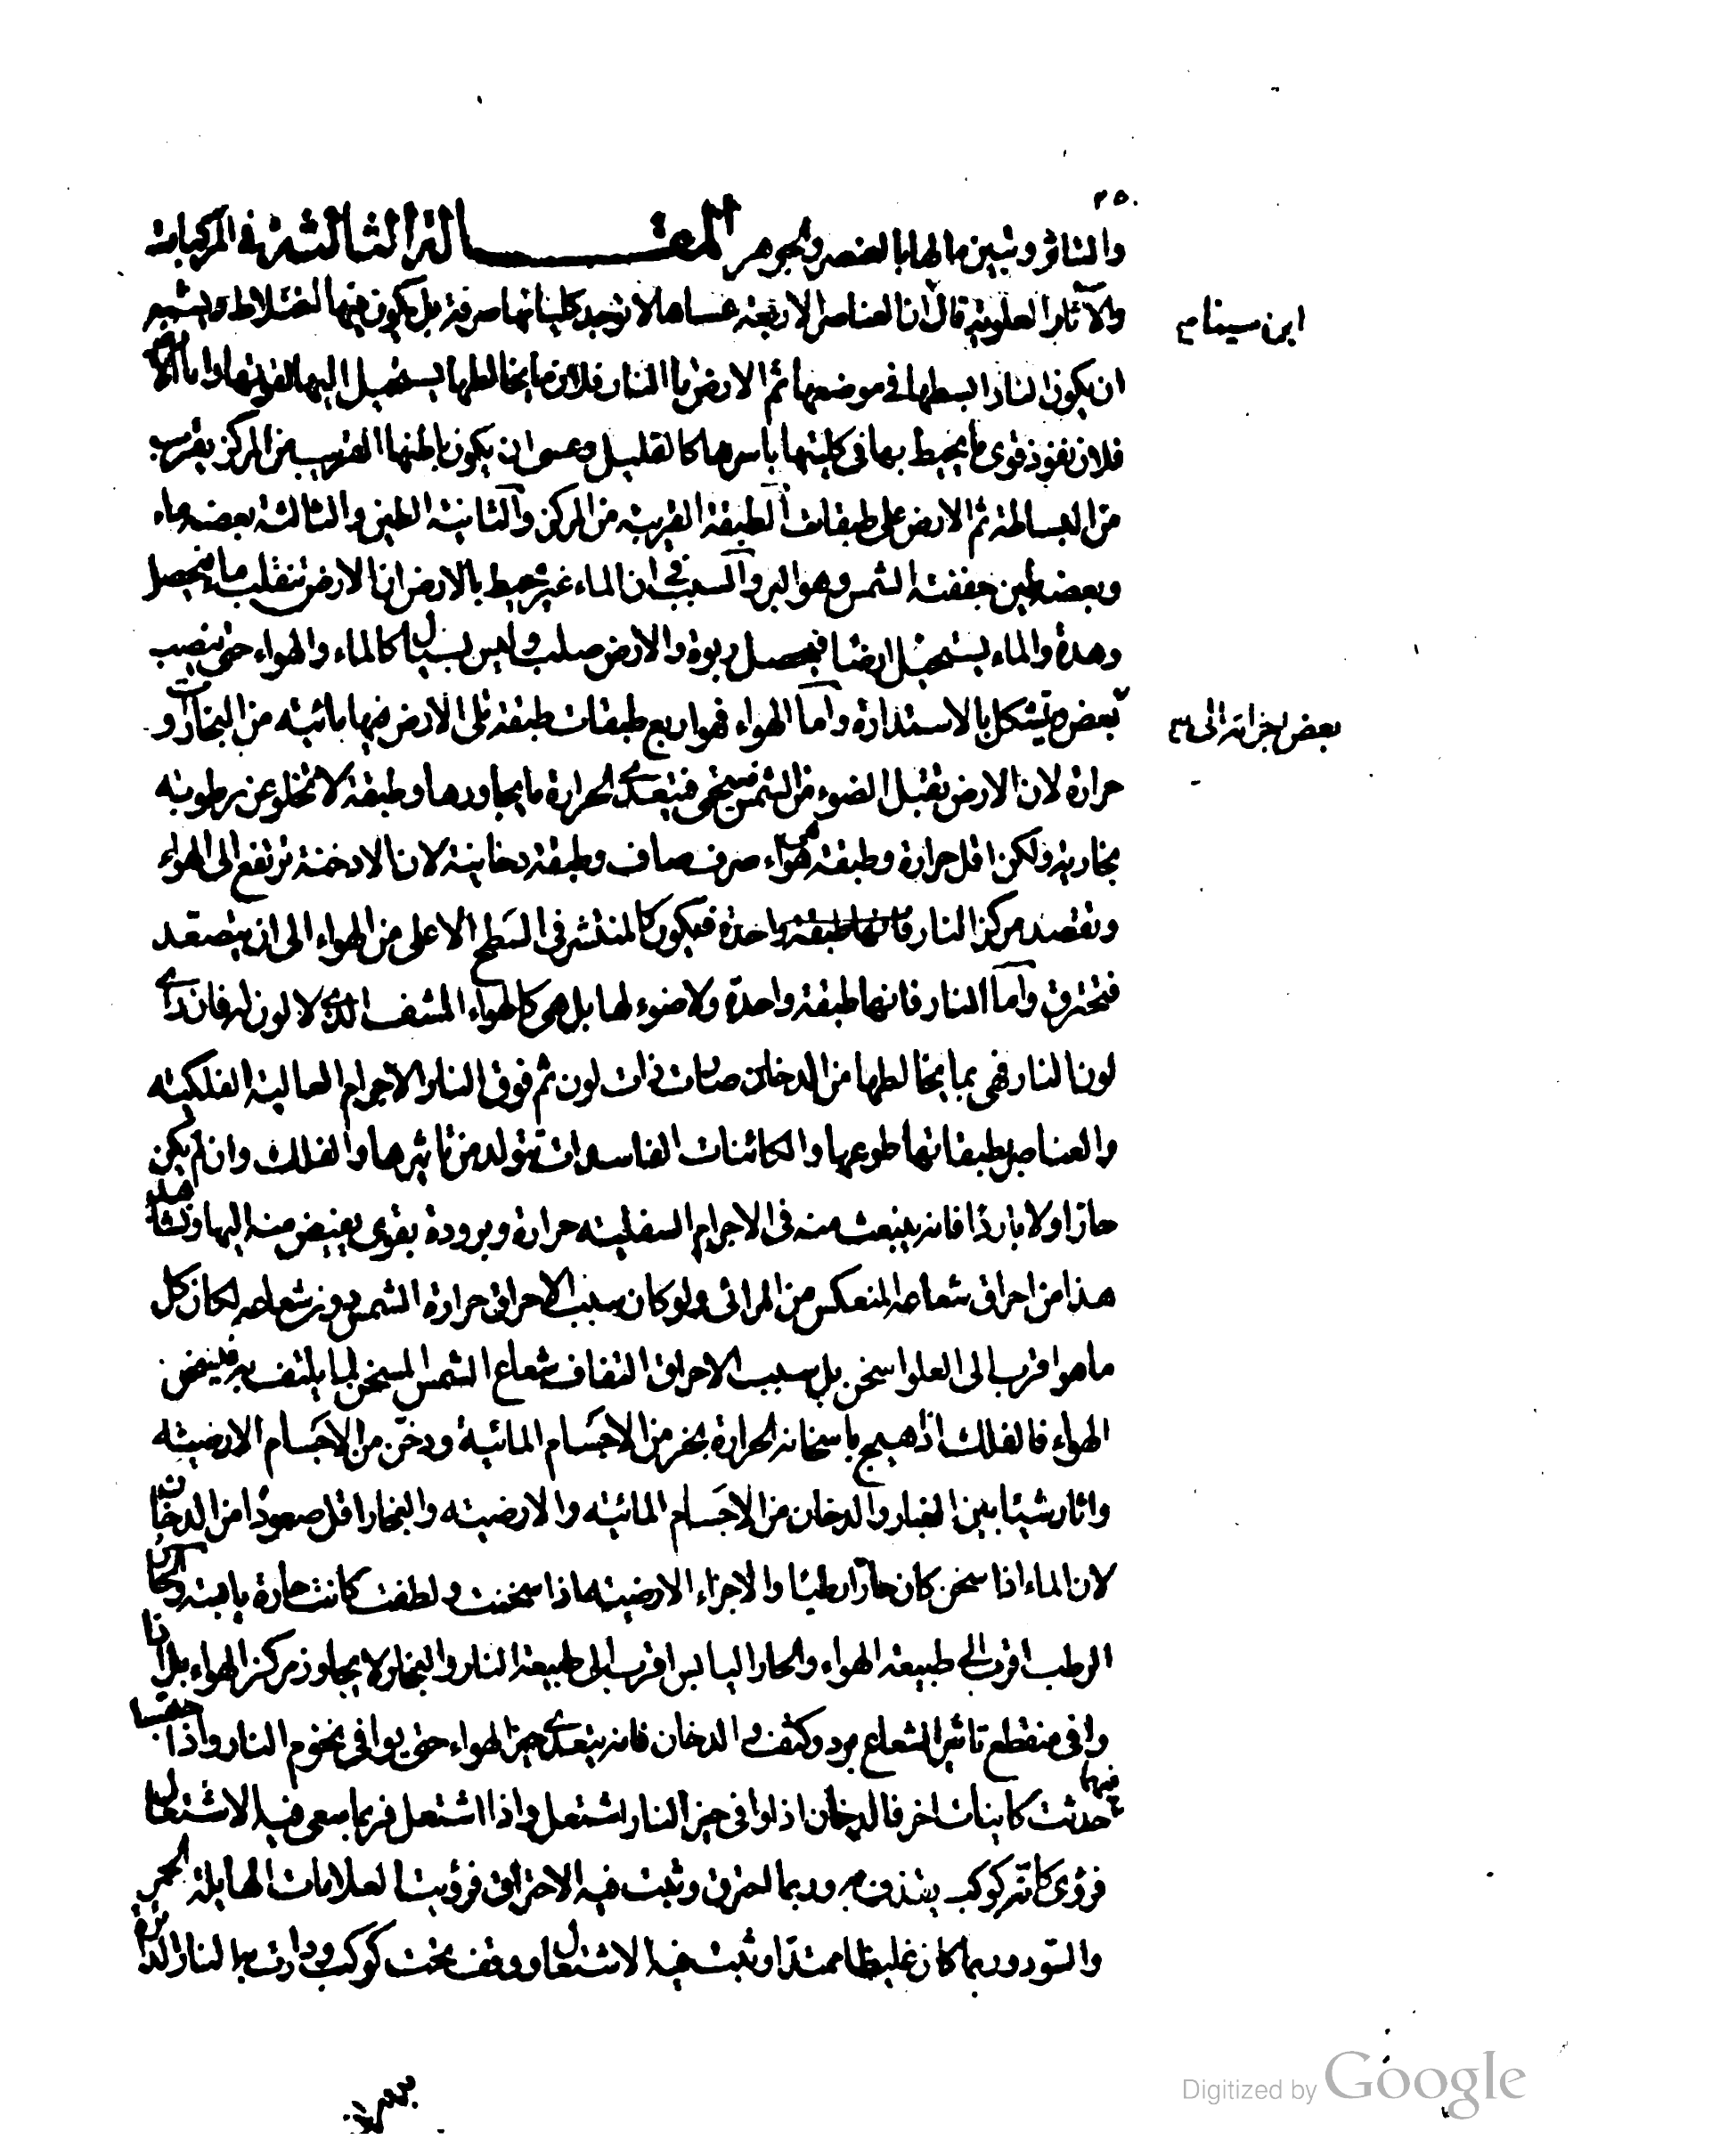 ٢٥٠
والتناثر وتبين مالها بالعنصر والجوهر المقالة الثالثة في المركبات
والآثار العلوية قال ان العناصر الاربعة عساها لا توجد كلياتها صرفة بل يكون فيها اختلاط ويشبه
ابن سينا
ان يكون النار ابسطها في موضعها ثم الارض اما النار فلان ما يخالطها يستحيل اليها لقوتها واما الارض
فلان نفوذ قوى ما يحيط بها في كليتها باسرها كالقليل وعسى ان يكون باطنها القريب من المركز يقرب
من البساطة ثم الارض على طبقات الطبقة القريبة من المركز والثانية الطين والثالثة بعضه ماء
وبعضه طين جففته الشمس وهو البر والسبب في ان الماء غير محيط بالارض ان الارض تنقلب ماء فيحصل
وهدة والماء يستحيل ارضا فيحصل ربوة والارض صلب وليس بسيال كالماء والهواء حتى ينصب
بعض ويتشكل بالاستدارة واما الهواء فهو اربع طبقات طبقة تلى الارض فيها مائية من البخارات و
بعض اجزائه الى
حرارة لان الارض تقبل الضوء من الشمس فيحمى فتتعدى الحرارة ما يجاورها وطبقة لا تخلو عن رطوبة
بخارية ولكن اقل حرارة وطبقة هي هواء صرف صاف وطبقة دخانية لان الادخنة ترتفع الى الهواء
وتقصد مركز النار فانها طبقة واحدة فيكون كالمنتشر في السطح الاعلى من الهواء الى ان يتصعد
فتحترق واما النار فانها طبقة واحدة ولا ضوء لها بل هي كالهواء المشف الذي لا لون له فان رأى
لون النار فهي بما يخالطها من الدخان صارت ذات لون ثم فوق النار الاجرام العالية الفلكية
والعناصر بطبقاتها طوعها والكائنات الفاسدات تتولد من تاثيرها والفلك وان لم يكن
حارا ولا باردا فانه ينبعث منه في الاجرام السفلية حرارة وبرودة بقوى يفيض منه اليها ونشاهد
هذا من احراق شعاعه المنعكس من المرائى ولو كان سبب الاحراق حرارة الشمس دون شعاعه لكان كل
ما هو اقرب الى العلو اسخن بل سبب الاحراق التفاف شعاع الشمس المسخن لما يلتف به فيسخن
الهواء فالفلك اذا هيج باسخانه الحرارة بخر من الاجسام المائية ودخن من الاجسام الارضية
واثار شيئا بين الغبار والدخان من الاجسام المائية والارضية والبخار اقل صعودا من الدخان
لان الماء اذا سخن كان حارا رطبا والاجزاء الارضية اذا سخنت ولطفت كانت حارة يابسة والحار
الرطب اقرب الى طبيعة الهواء والحار اليابس اقرب الى طبيعة النار والبخار لا يجاوز مركز الهواء بل اذا
وافى منقطع تاثير الشعاع برد وكثف والدخان فانه يتعدى حيز الهواء حتى يوافى تخوم النار واذا احتبسا
فيهما حدثت كاينات اخر فالدخان اذا وافى حيز النار اشتعل واذا اشتعل فربما سعى فيه الاشتعال
فرؤى كانه كوكب يقذف به وربما احترق وثبت فيه الاحتراق فرؤيت العلامات الهايلة الحمر
والسود وربما كان غليظا ممتدا وثبت فيه الاشتعال ووقف تحت كوكب ودارت به النار الدائرة